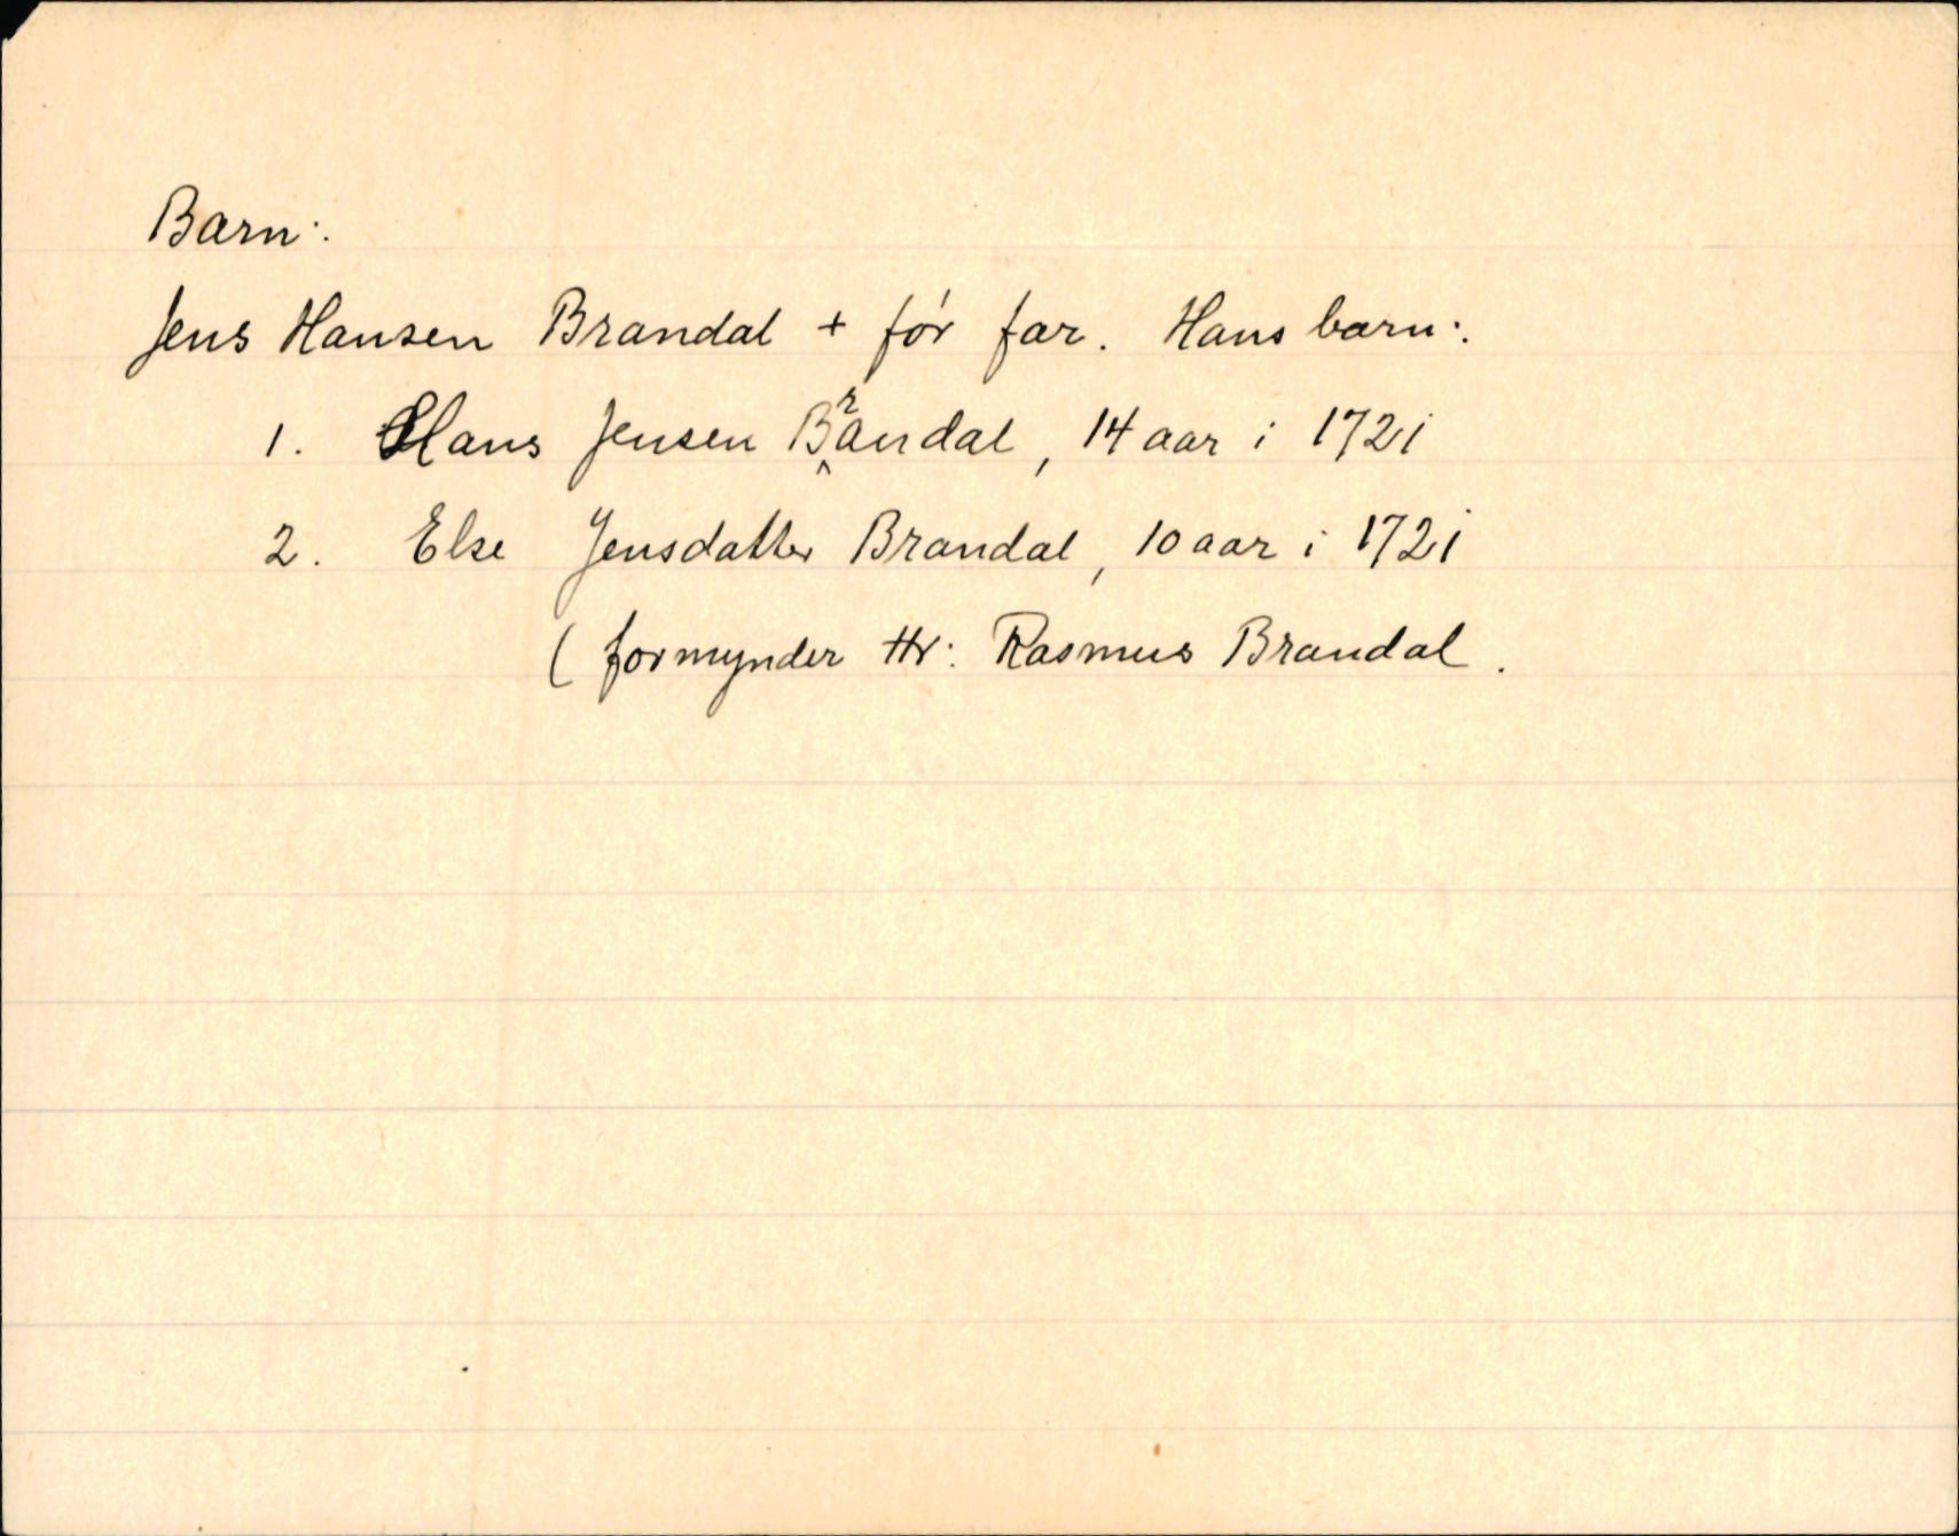 Barn:
Jens Hansen Brandal + før far. Hans barn:
1. Hans Jensen Brandal, 14 aar i 1721
2. Else Jensdatter Brandal, 10 aar i 1721
( formynder Hr: Rasmus Brandal.